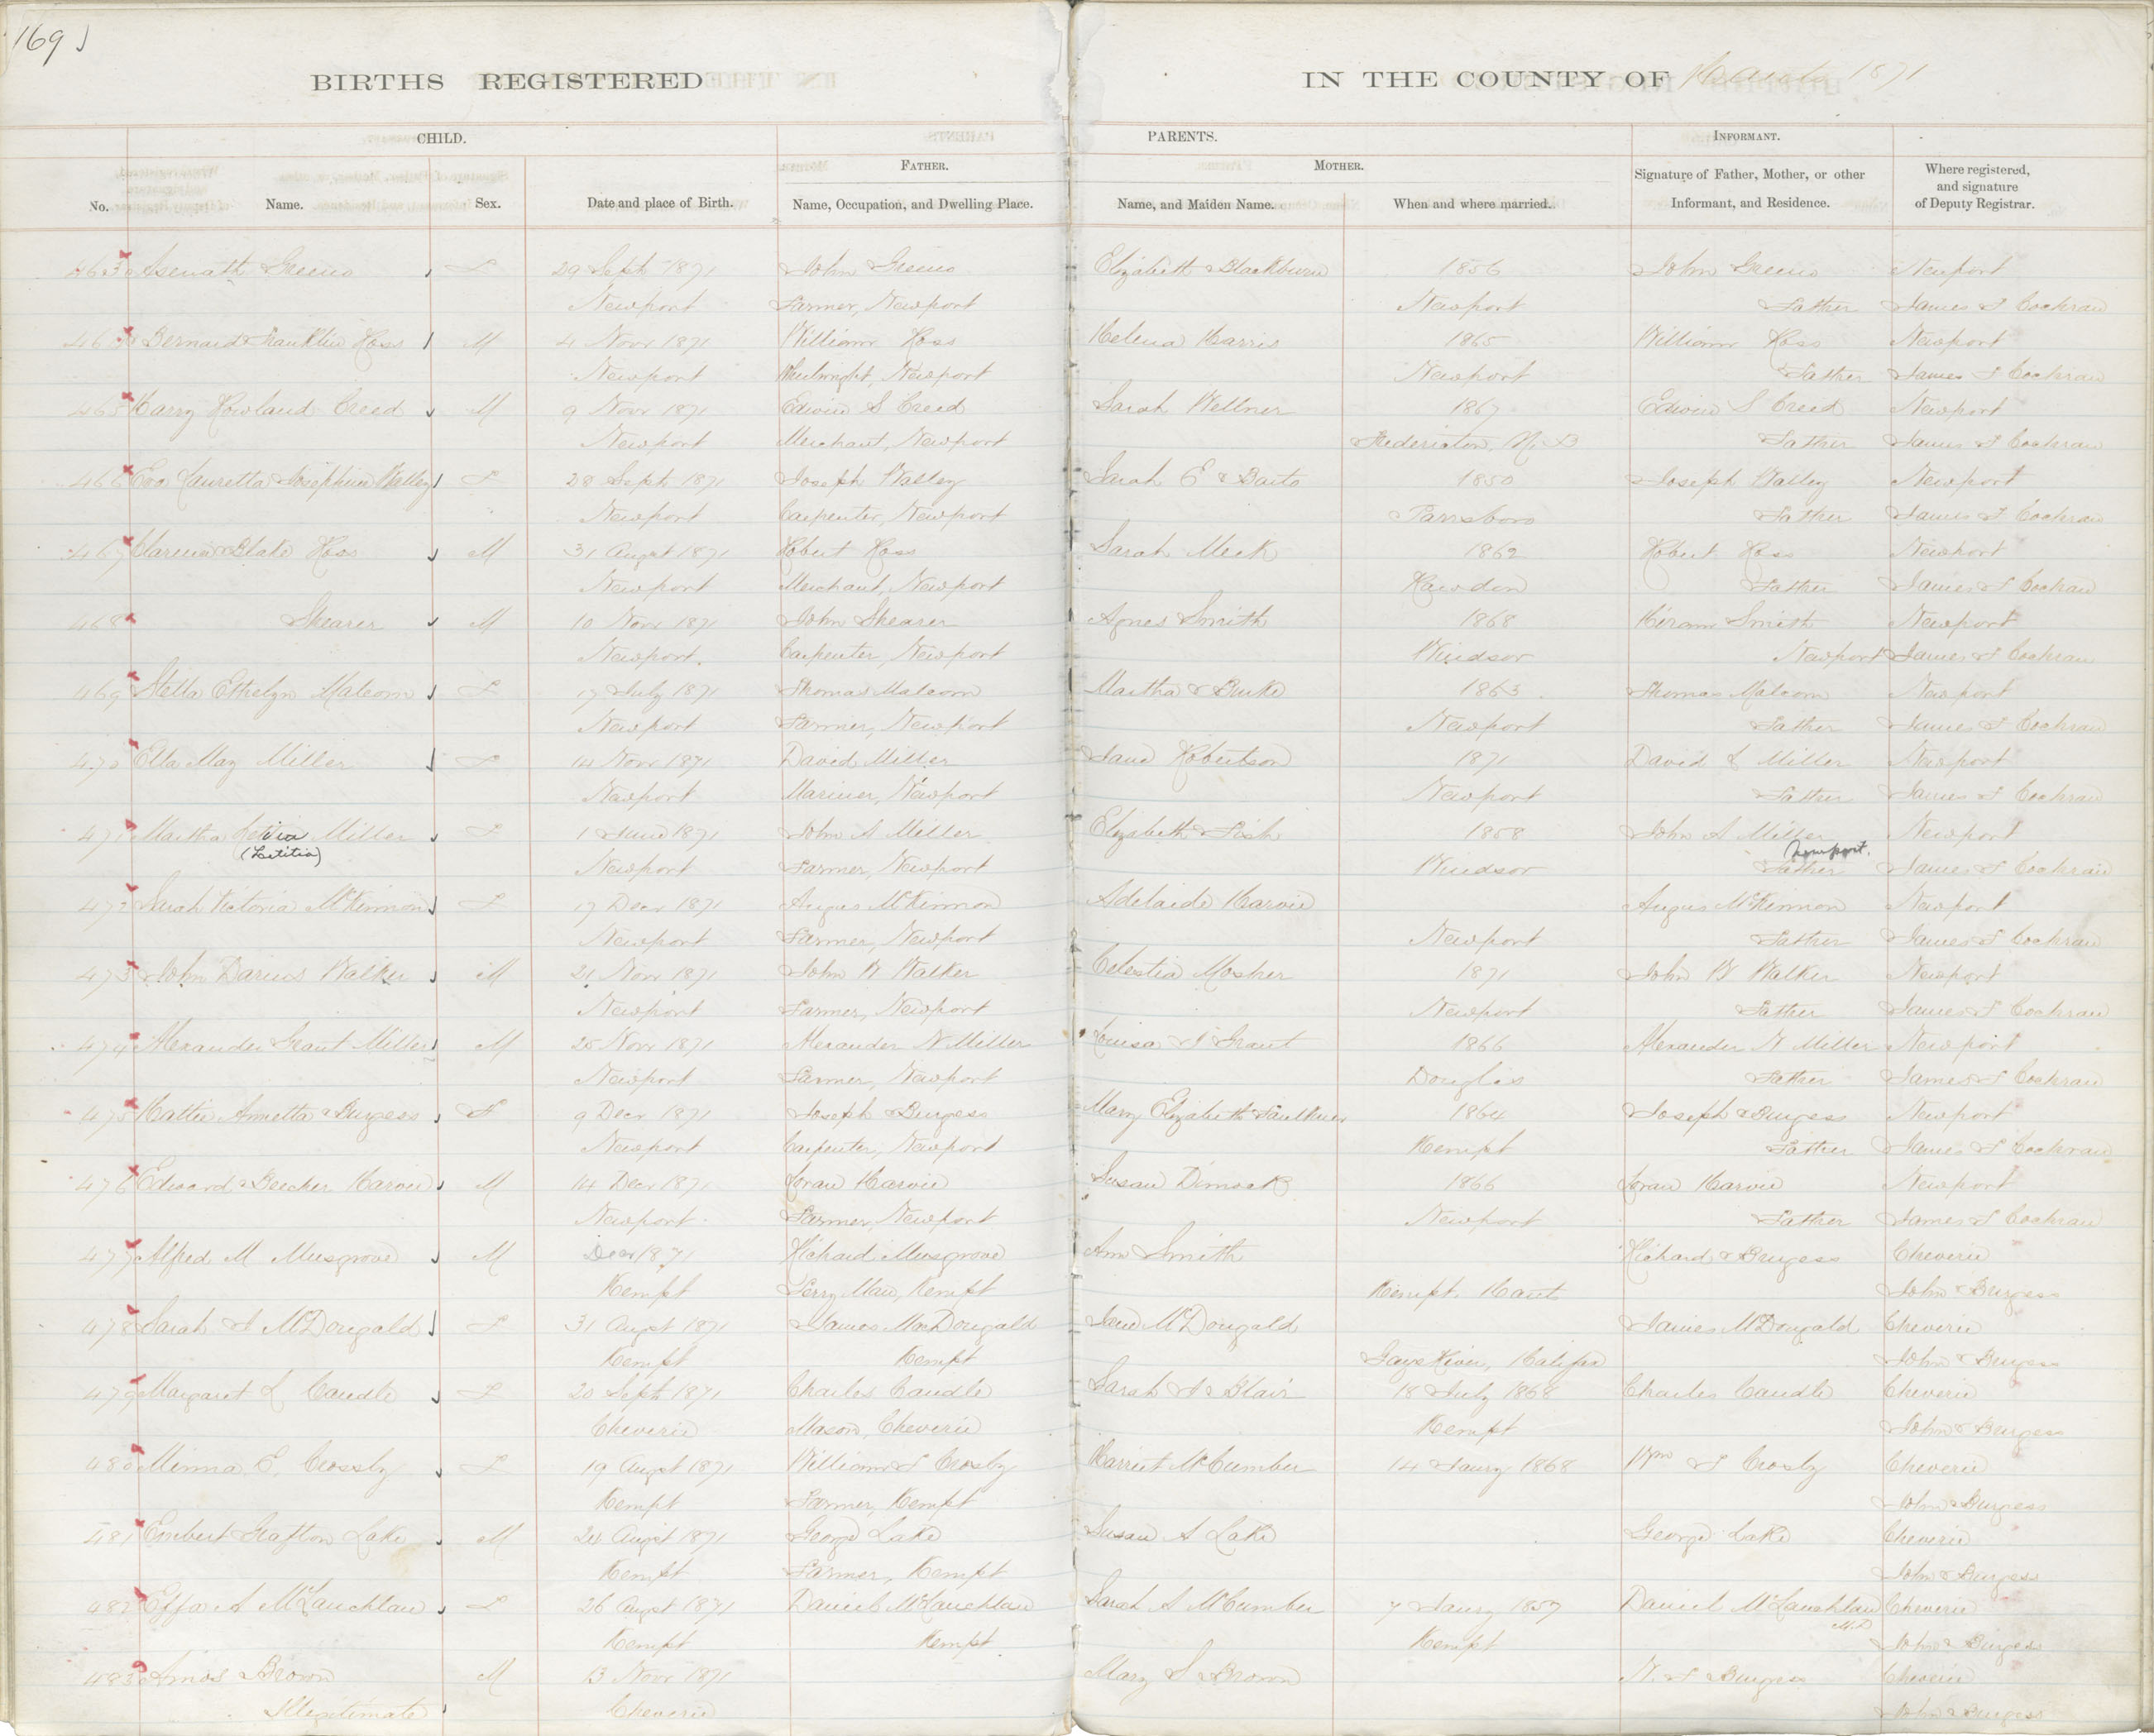 169
BIRTHS REGISTERED IN THE COUNTY OF Hants 1871
CHILD. PARENTS. INFORMANT.
FATHER. MOTHER.
No. Name. Sex. Date and place of Birth. Name, Occupation, and Dwelling Place. Name, and Maiden Name. When and where married. Signature of Father, Mother, or other Informant, and Residence. Where registered, and signature of Deputy Registrar.
463 Asenath Greeno F 29 Sept 1871 John Greeno Elizabeth Blackburn 1856 John Greeno Newport
Newport Farmer, Newport Newport Father James F Cochran
464 Bernard Franklin Ross M 4 Novr 1871 William Ross Helena Harris 1865 William Ross Newport
Newport Wheelwright, Newport Newport Father James F Cochran
465 Harry Rowland Creed M 9 Novr 1871 Edwin S Creed Sarah Wellner 1867 Edwin S Creed Newport
Newport Merchant, Newport Frederickton, N.B Father James F Cochran
466 Eva Lauretta Josephine Walley F 28 Sept 1871 Joseph Walley Sarah E 1850 Joseph Walley Newport
Newport Carpenter, Newport Parrsboro Father James F Cochran
467 Ross M 31 Augst 1871 Robert Ross Sarah Meek 1862 Robert Ross Newport
Newport Merchant, Newport Rawdon Father James F Cochran
468 Shearer M 10 Novr 1871 John Shearer Agnes Smith 1868 Hiram Smith Newport
Newport. Carpenter, Newport Windsor Newport James F Cochran
469 Stella Ethelyn Malcom F 17 July 1871 Thomas Malcom Martha Burke 1863 Thomas Malcom Newport
Newport Farmer, Newport Newport Father James F Cochran
470 Ella May Miller F 14 Novr 1871 David Miller Jane Robertson 1871 David L Miller Newport
Newport Mariner, Newport Newport Father James F Cochran
471 Martha Miller F 1 June 1871 John A Miller Elizabeth Fish 1858 John A Miller Newport
(Letitia) Newport.
Newport Farmer, Newport Windsor Father James F Cochran
472 Sarah Victoria McKinnon F 17 Decr 1871 Angus McKinnon Adelaide Harvie Angus McKinnon Newport
Newport Farmer, Newport Newport Father James F Cochran
473 John Darius Walker M 21 Novr 1871 John W Walker Celestia Mosher 1871 John W Walker Newport
Newport Farmer, Newport Newport Father James F Cochran
474 Alexander Grant Miller M 25 Novr 1871 Alexander N Miller Louisa J Grant 1866 Alexander N Miller Newport
Newport Farmer, Newport Douglas Father James F Cochran
475 Hattie Annetta Burgess F 9 Decr 1871 Joseph Burgess Mary Elizabeth Faulkner 1864 Joseph Burgess Newport
Newport Carpenter, Newport Kempt Father James F Cochran
476 Edward Beecher Harvie M 14 Decr 1871 Loran Harvie Susan Dimock 1866 Loran Harvie Newport
Newport Farmer, Newport Newport Father James F Cochran
477 Alfred M Musgrove M Decr 1871 Richard Musgrove Ann Smith Richard Burgess Cheverie
Kempt Ferry Man, Kempt Kempt Hants John Burgess
478 Sarah J McDougald F 31 Augst 1871 James MacDougald Jane McDougald James McDougald Cheverie
Kempt Kempt Gays River, Halifax John Burgess
479 Margaret L Caudle F 20 Septr 1871 Charles Caudle Sarah J Blair 18 July 1868 Charles Caudle Cheverie
Cheverie Mason, Cheverie Kempt John Burgess
480 Minna E. Crossby F 19 Augst 1871 William F Crosby Harriet McCumber 14 Janry 1868 Wm F Crosby Cheverie
Kempt Farmer, Kempt John Burgess
481 Embert Grafton Lake M 24 Augst 1871 George Lake Susan A Lake George Lake Cheverie
Kempt Farmer, Kempt John Burgess
482 Effa A McLauchlan F 26 Augst 1871 Daniel McLauchlan Sarah A McCumber 7 Janry 1857 Daniel McLauchlan Cheverie
Kempt Kempt Kempt John Burgess
483 Amos Brown M 13 Novr 1871 Mary S Brown N. F Burgess Cheverie
Illegitimate Cheverie John Burgess